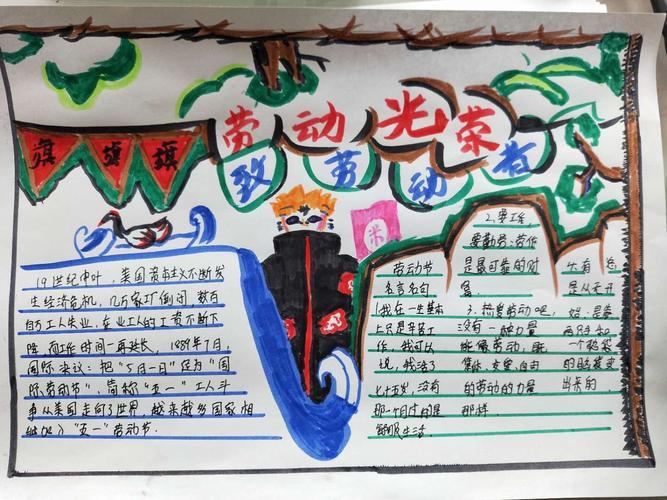 劳动光荣
致劳动者
旗 旗 旗
米
19世纪中叶，美国资本主义不断发
生经济危机，几万家厂倒闭，数百
自万工人失业，在业工人的工资不断下
降，而工作时间一再延长，1889年7月，
国际决议：把"5月一日"定为"国
际劳动节"，简称"五一"工人斗
争从美国走向了世界，越来越多国家相
"五一"劳动节.
劳动节
名言名句
1我在一生基本
上只是辛苦工
作，我可以
说，我活了
七十五岁，没有
那一个月过的是
舒服生活
2.要工作，
要勤劳:劳作
是最可靠的财
富
3.热爱劳动吧，
没有一种力量
能像劳动，既
集体、友爱、自由
的劳动的力量
那样.
是从天开
出来的